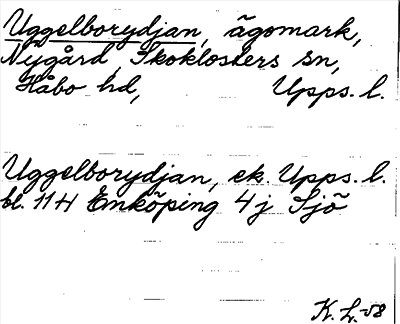 Uggelborydjan, ägomark,
Nygård, Skoklosters sn,
Håbo hd, Upps. l.
Uggelborydjan, ek. Upps. l.
bl. 11 H Enköping 4 j Sjö
K. L.-58